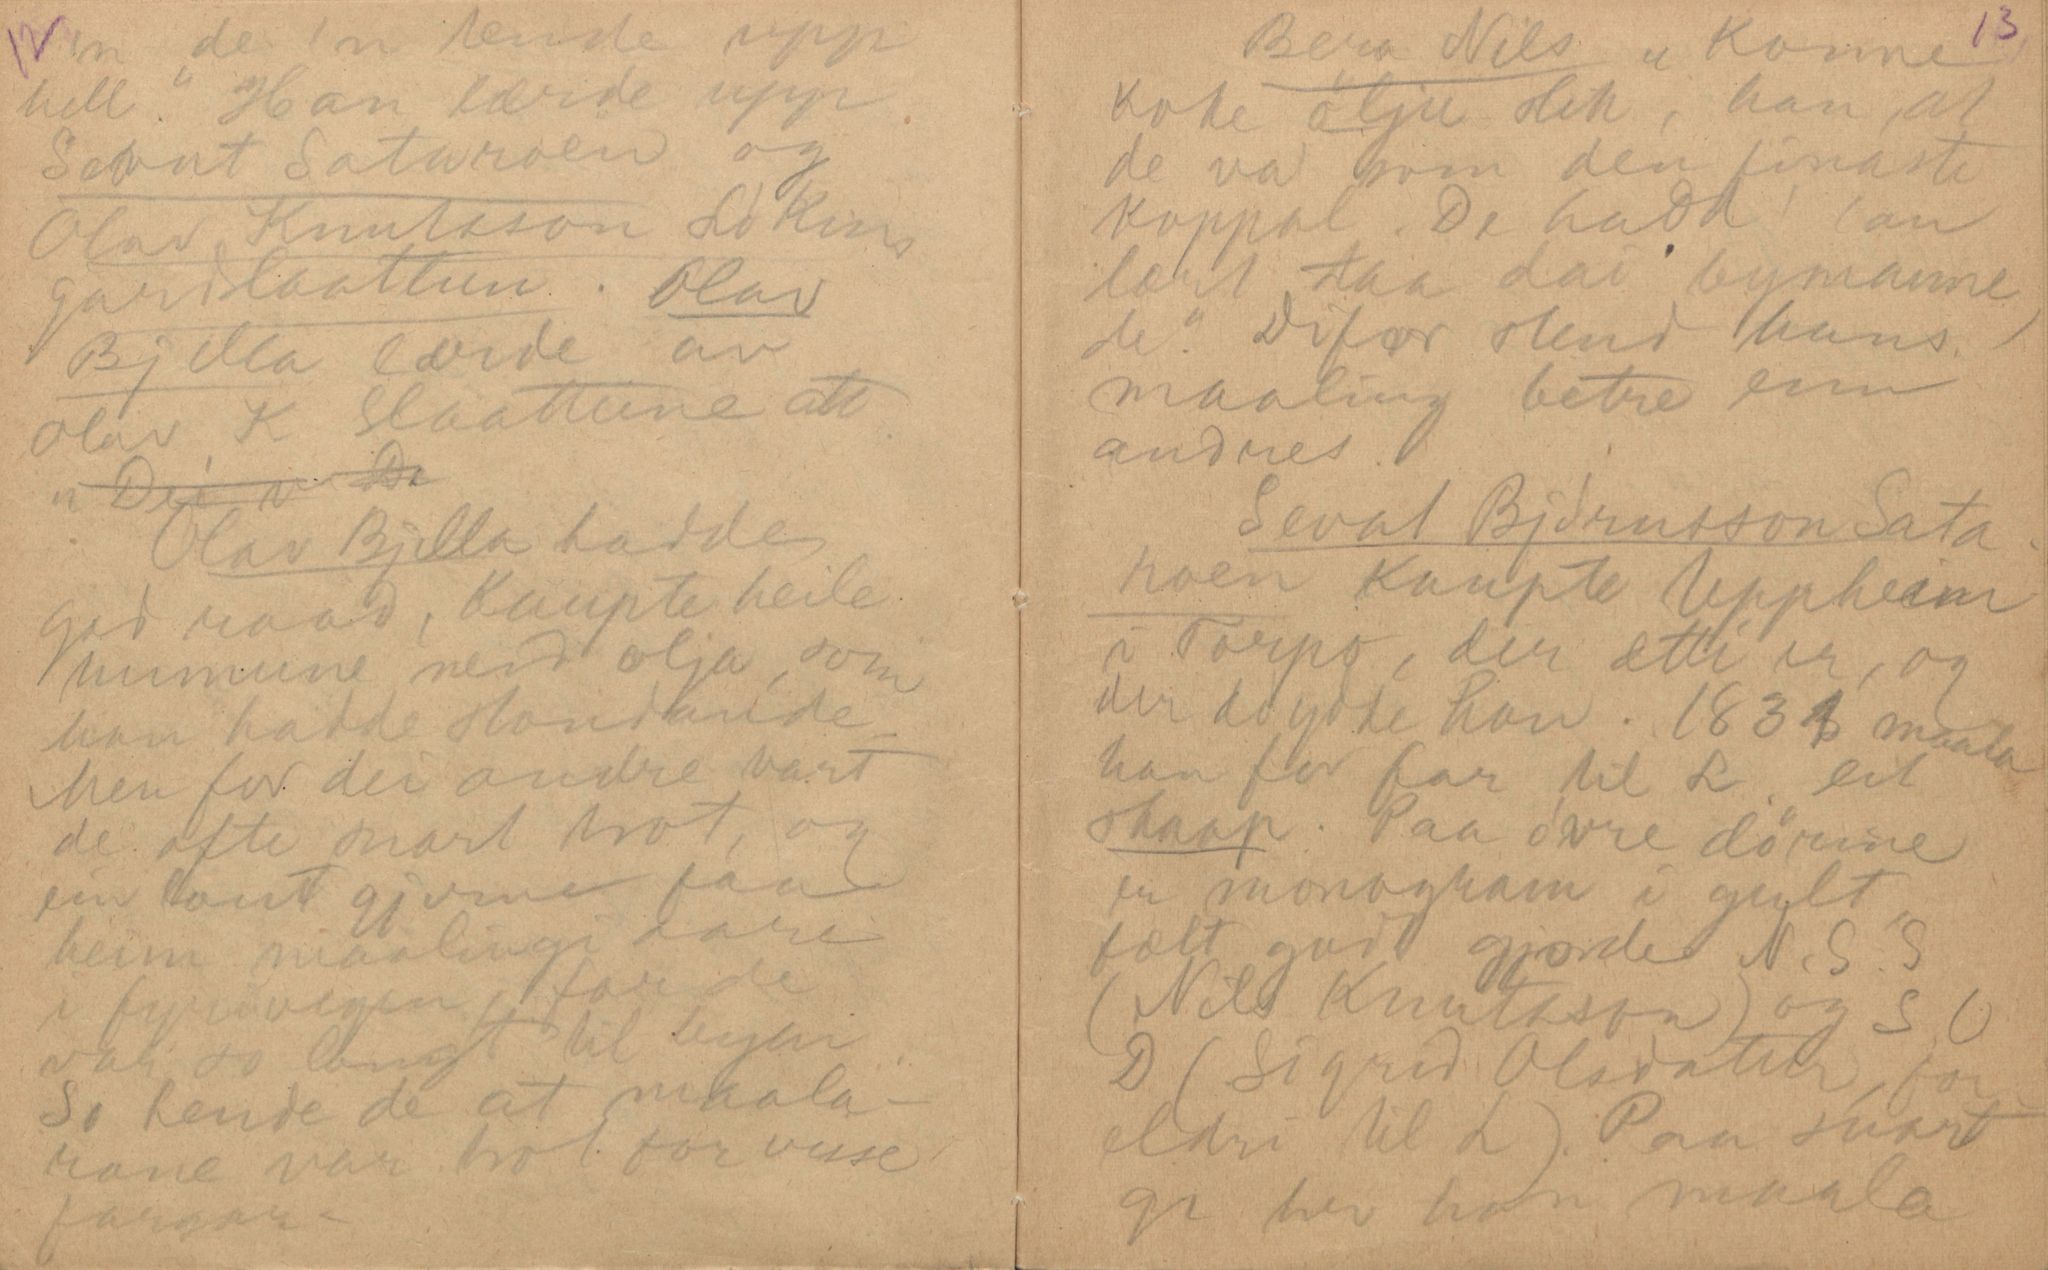 12
'n de 'n kende upp
hell." Han lærde upp
Sevat Sataroen og
Olav Knutsson Lökins
gardslaattun. Olav
Bjella lærde av
Olav K Slaattune att.
" Dei v De
Olav Bjella hadde
god raad, kaupte heile
me olja, som
han hadde standande
Men for dei andre vart
de ofte snart trot, og
ein laut gjerne faa
heim maalingi
i fyrivegen, for de
var so langt til byen.
So hende de at maala-
rane var trot for visse
fargar.
13
Bera Nils " Konne
koke ölju slik, han, at
de va som den finaste
koppal. De hadd' 'an
lært taa dai bymanne
de." Difor stend hans
maaling betre enn
andres.
Sevat Björnsson Sata
roen kaupte Uppheim
i Torpo, der ætti er, og
der döydde han. 183 maala
han for far til L. eit
skaap. Paa övre dörine
er monogram i gult,
godt gjorde N. S. S
(Nils Knutsson) og S O
D (Sigrid Olsdatter, for
eldri til L). Paa svart
gr hev han maala